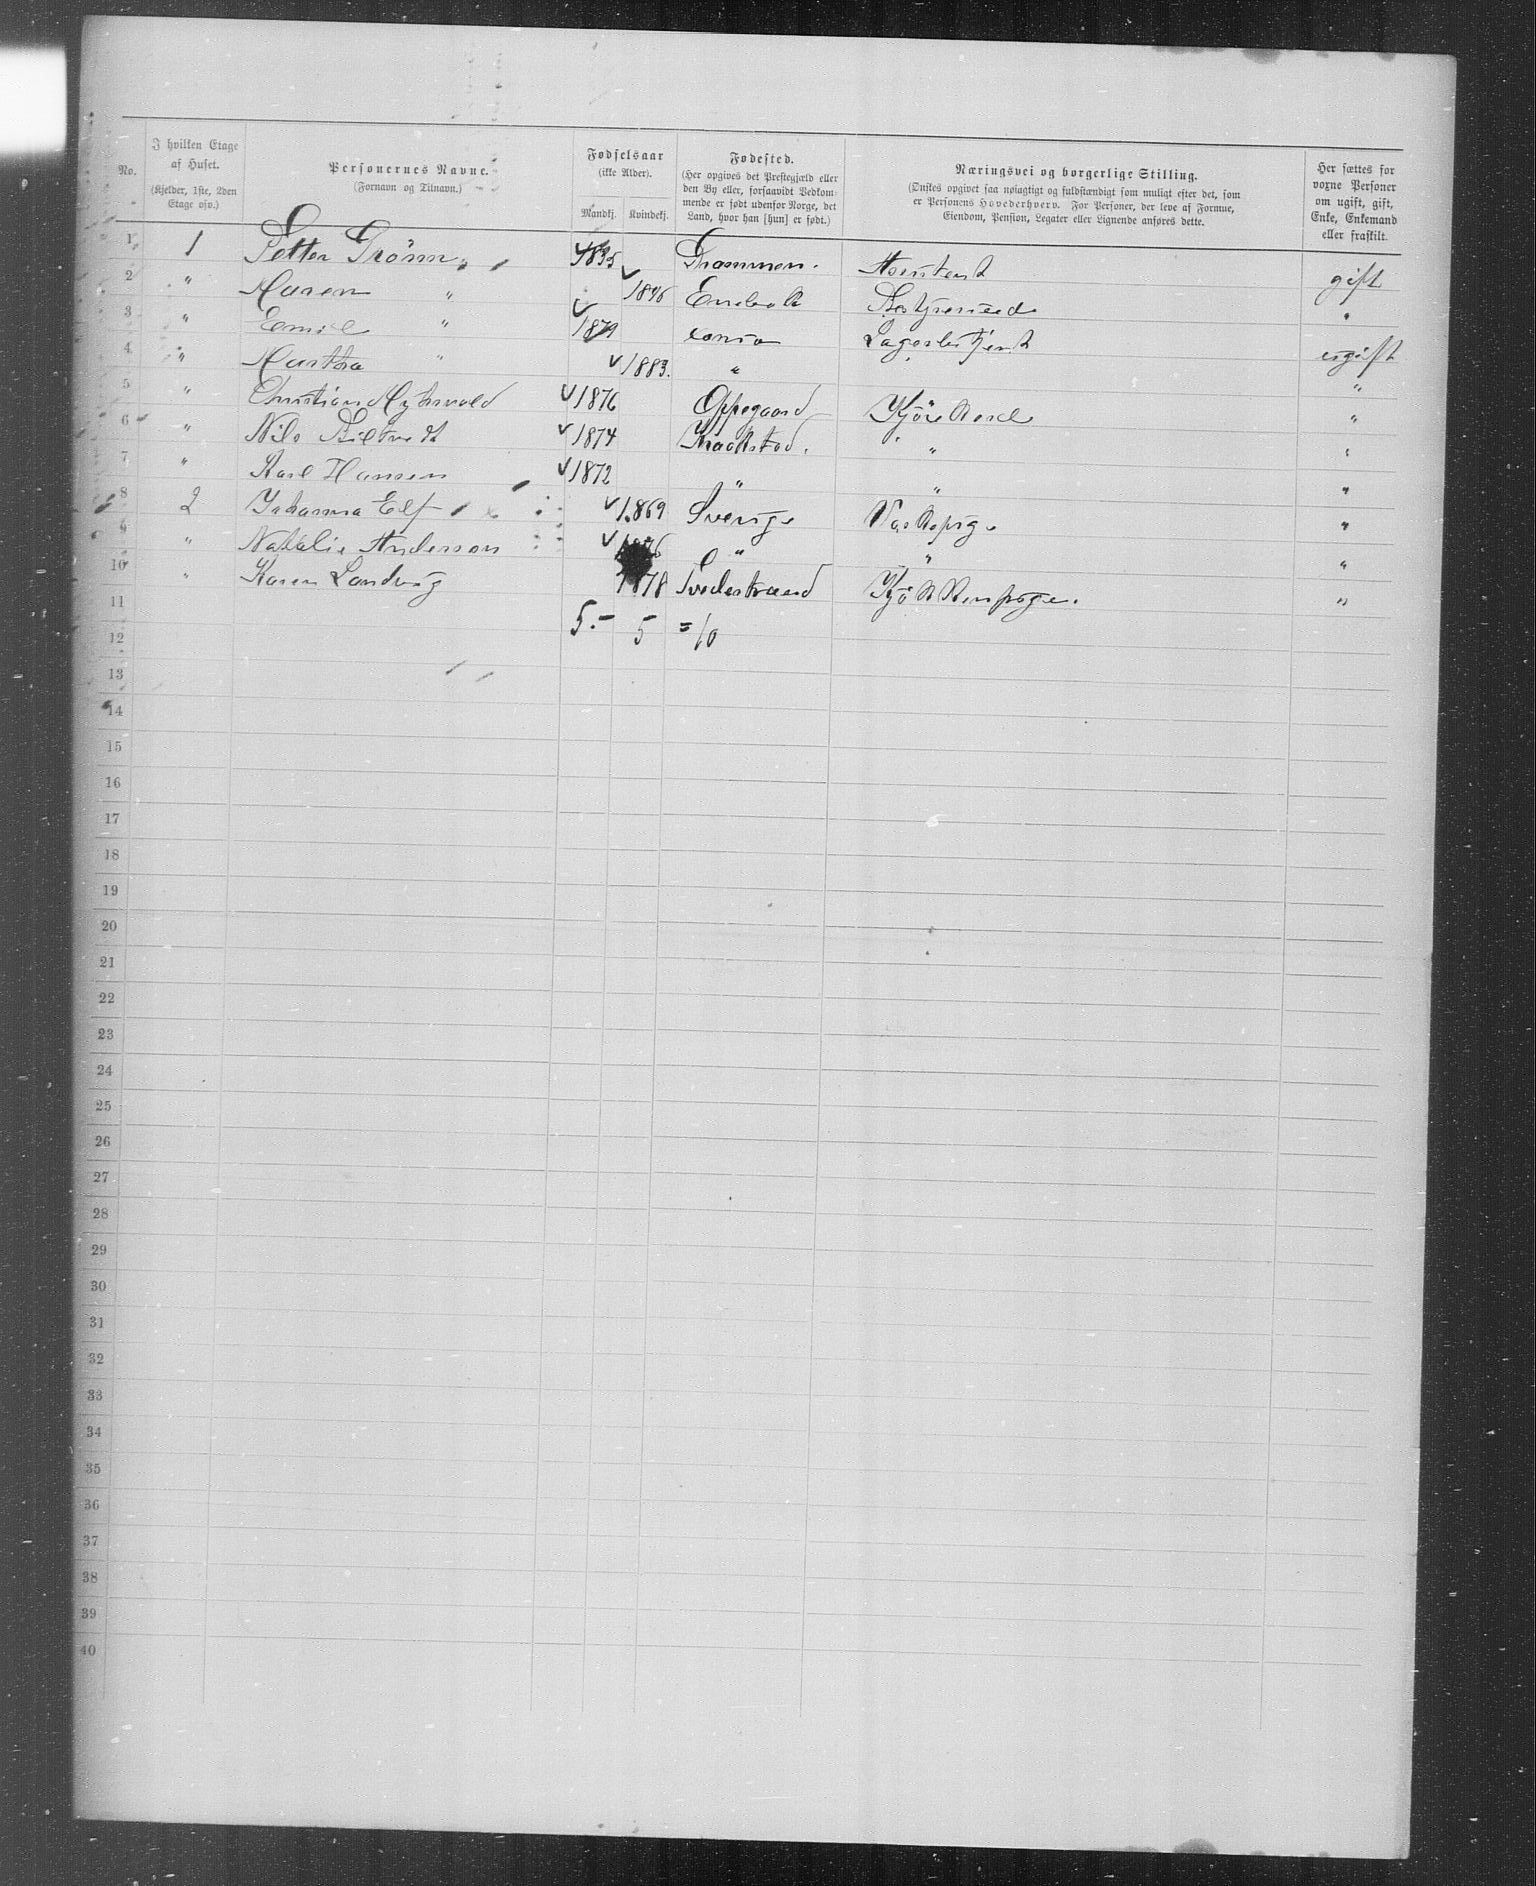 No. I hvilken Etage af Huset. (Kjelder, 1ste, 2den Etage osv.) Personernes Navne. (Fornavn og Tilnavn.) Fødselsaar (ikke Alder). Mandkj. Kvindekj. Fødested. (Her opgives det Prestegjæld eller den By eller, forsaavidt Vedkommende er født udenfor Norge, det Land, hvor han [hun] er født.) Næringsvei og borgerlige Stilling. (Ønskes opgivet saa nøiagtigt og fuldstændigt som muligt efter det, som er Personens Hovederhverv. For Personer, der leve af Formue, Eiendom, Pension, Legater eller Lignende anføres dette. Her sættes for voxne Personer om ugift, gift, Enke, Enkemand eller fraskilt.
1 1 Petter Grönn 1835 Drammen. gift
2 " Maren " 1846 Enebak "
3 " Emil " 1879 Lagerbetjent ugift
4 " Martha " 1883. " "
5 " Christian Myhrvold 1876 Oppegaard "
6 " Nils 1874 Kraakstad. " "
7 " Karl Hansen 1872 " " "
8 2 Johanna Elf 1869 Sverige Vaskepige "
9 " Natalie Anderson " " "
10 " Karen Landvig 1878 Tvedestrand Kjökkenpige. "
11 5.- 5 = 10
12
13
14
15
16
17
18
19
20
21
22
23
24
25
26
27
28
29
30
31
32
33
34
35
36
37
38
39
40